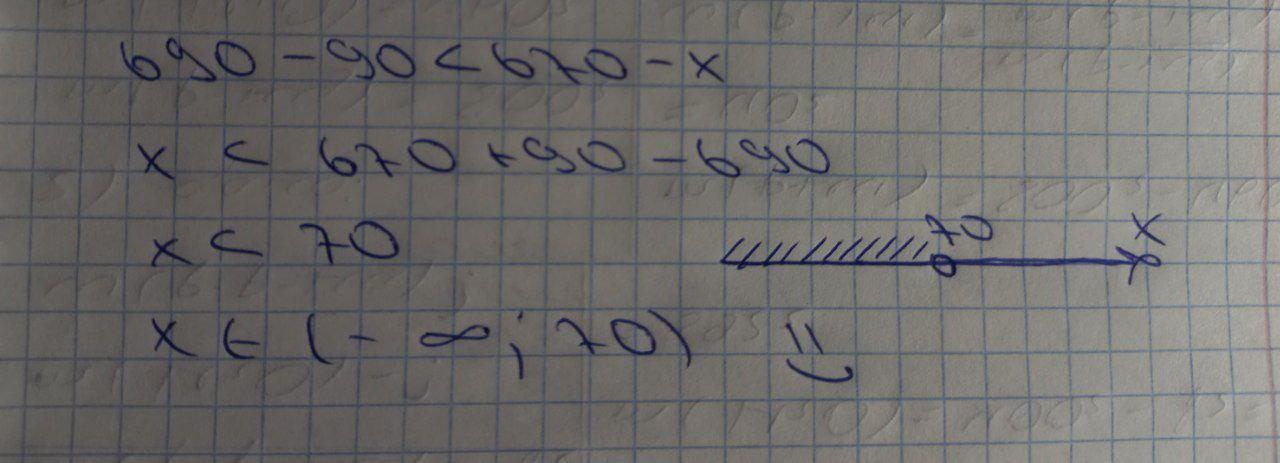 690 - 90 < 670 - x
x < 670 + 90 - 690
x < 70
70 x
x ∈ (- ∞; 70)